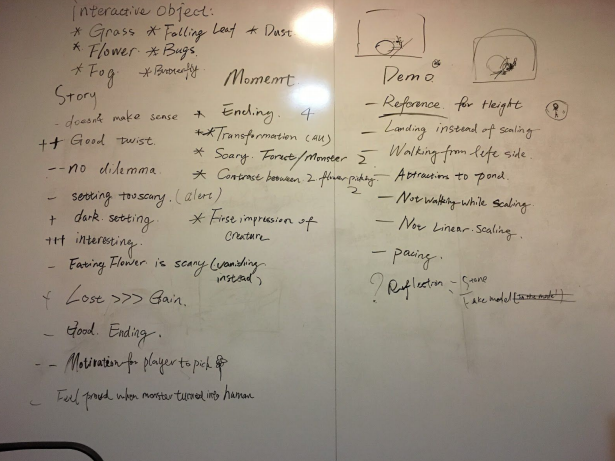 interactive object:
* Grass * Falling Leaf * Dust
* Flower * Bugs
* Fog * Butterfly
Story
- doesn't make sense
++ Good twist
-- no dilemma
- setting too scary (alert)
+ dark setting
+++ interesting
- Eating Flower is scary (vanishing instead)
+ Lost >>> Gain.
- Good Ending.
-- Motivation for player to pick
- Feel proud when monster turned into human
Moment
* Ending. 4
** Transformation (All)
* Scary. Forest/Monster 2
* Contrast between 2 flower picking. 2
* First impression of
creature
Demo
- Reference for Height
- Landing instead of scaling
- Walking from left side
- Attractions to pond.
- Not walking while scaling
- Not Linear scaling.
- pacing.
? Reflection - Stone
Fake model